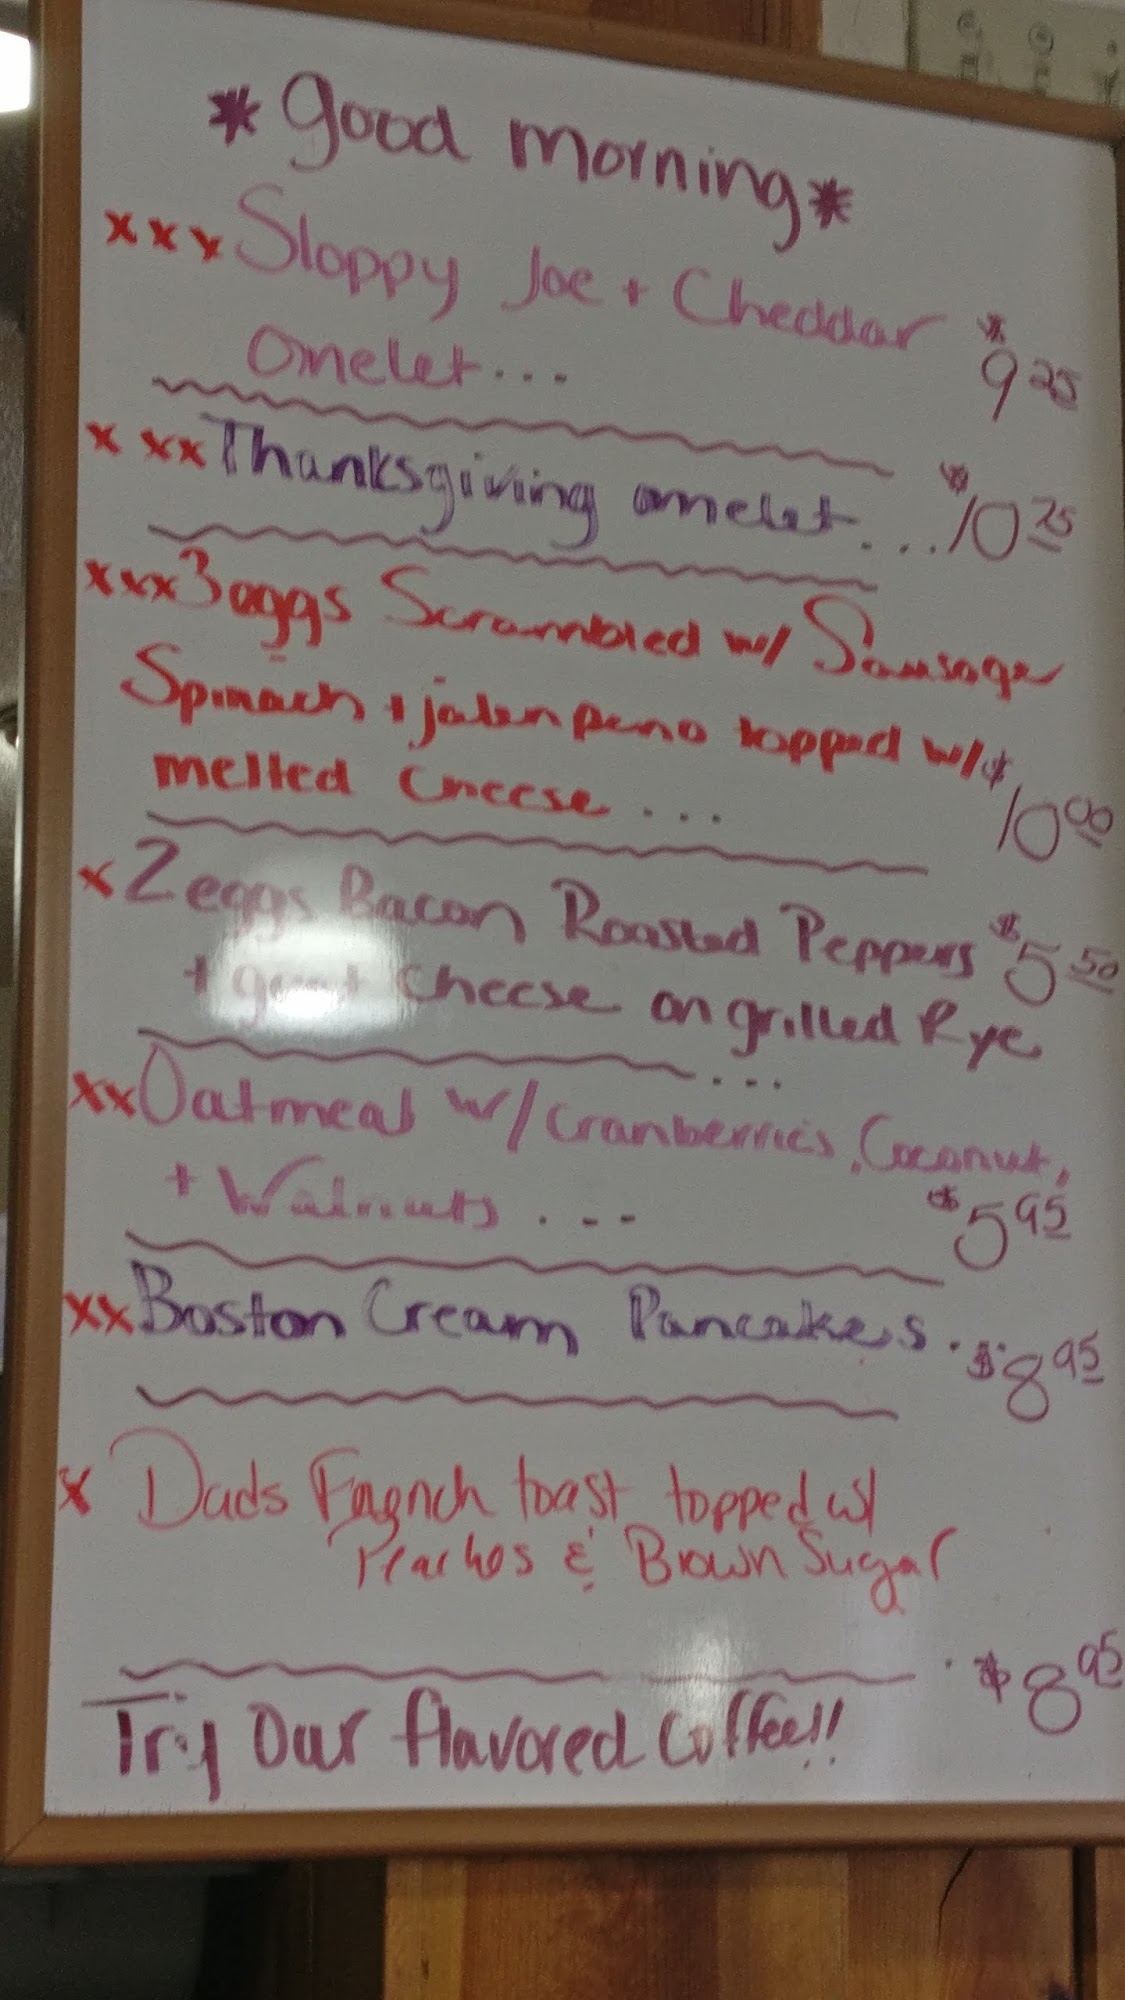 *Good morning*
xxx Sloppy Joe + Cheddar
omelet... $9.25
x xx Thanksgiving omelet... $10.25
xxx 3 eggs Scrambled w/ Sausage
Spinach + jalenpeno topped w/
melted Cheese... $10.00
x 2 eggs Bacon Roasted Peppers $5.50
+ goat cheese on grilled Rye
...
xx Oatmeal w/ cranberries, Coconut,
+ Walnuts... $5.95
xx Boston Cream Pancakes.. $8.95
x Dads French toast topped w/
Peaches & Brown Sugar
. $8.95
Try Our flavored Coffee!!